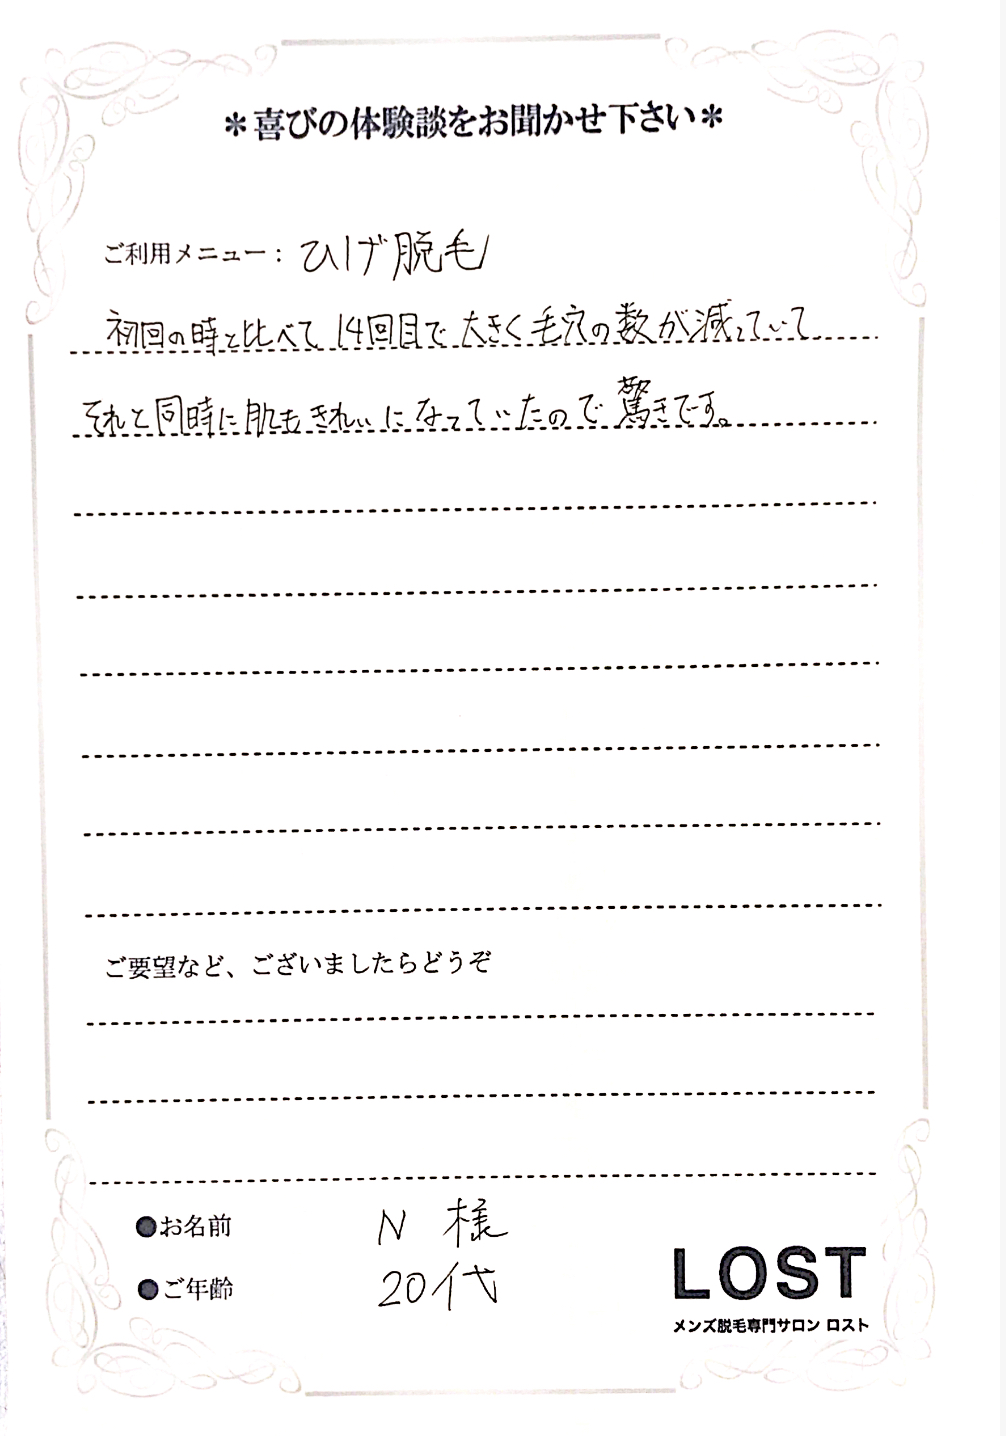 ＊喜びの体験談をお聞かせ下さい＊
ご利用メニュー：ひげ脱毛
初回の時と比べて14回目で大きく毛穴の数が減っていて
それと同時に肌もきれいになっていたので驚きです。
ご要望など、ございましたらどうぞ
●お名前 N 様
●ご年齢 20代
LOST
メンズ脱毛専門サロン ロスト